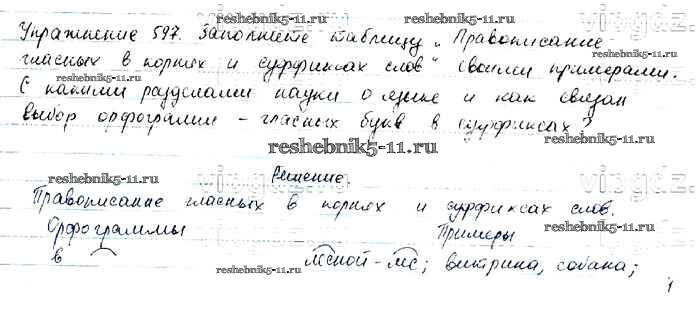 Упражнение 597. Заполните таблицу „Правописание
гласных в корнях и суффиксах слов“ своими примерами.
С какими разделами науки о языке и как связан
выбор орфограмм - гласных букв в суффиксах?
Решение.
Правописание гласных в корнях и суффиксах слов.
Орфограммы Примеры
в лесной - лес; витрина, собака;
reshebnik5-11.ru
reshebnik5-11.ru
reshebnik5-11.ru
reshebnik5-11.ru
reshebnik5-11.ru
reshebnik5-11.ru
reshebnik5-11.ru
reshebnik5-11.ru